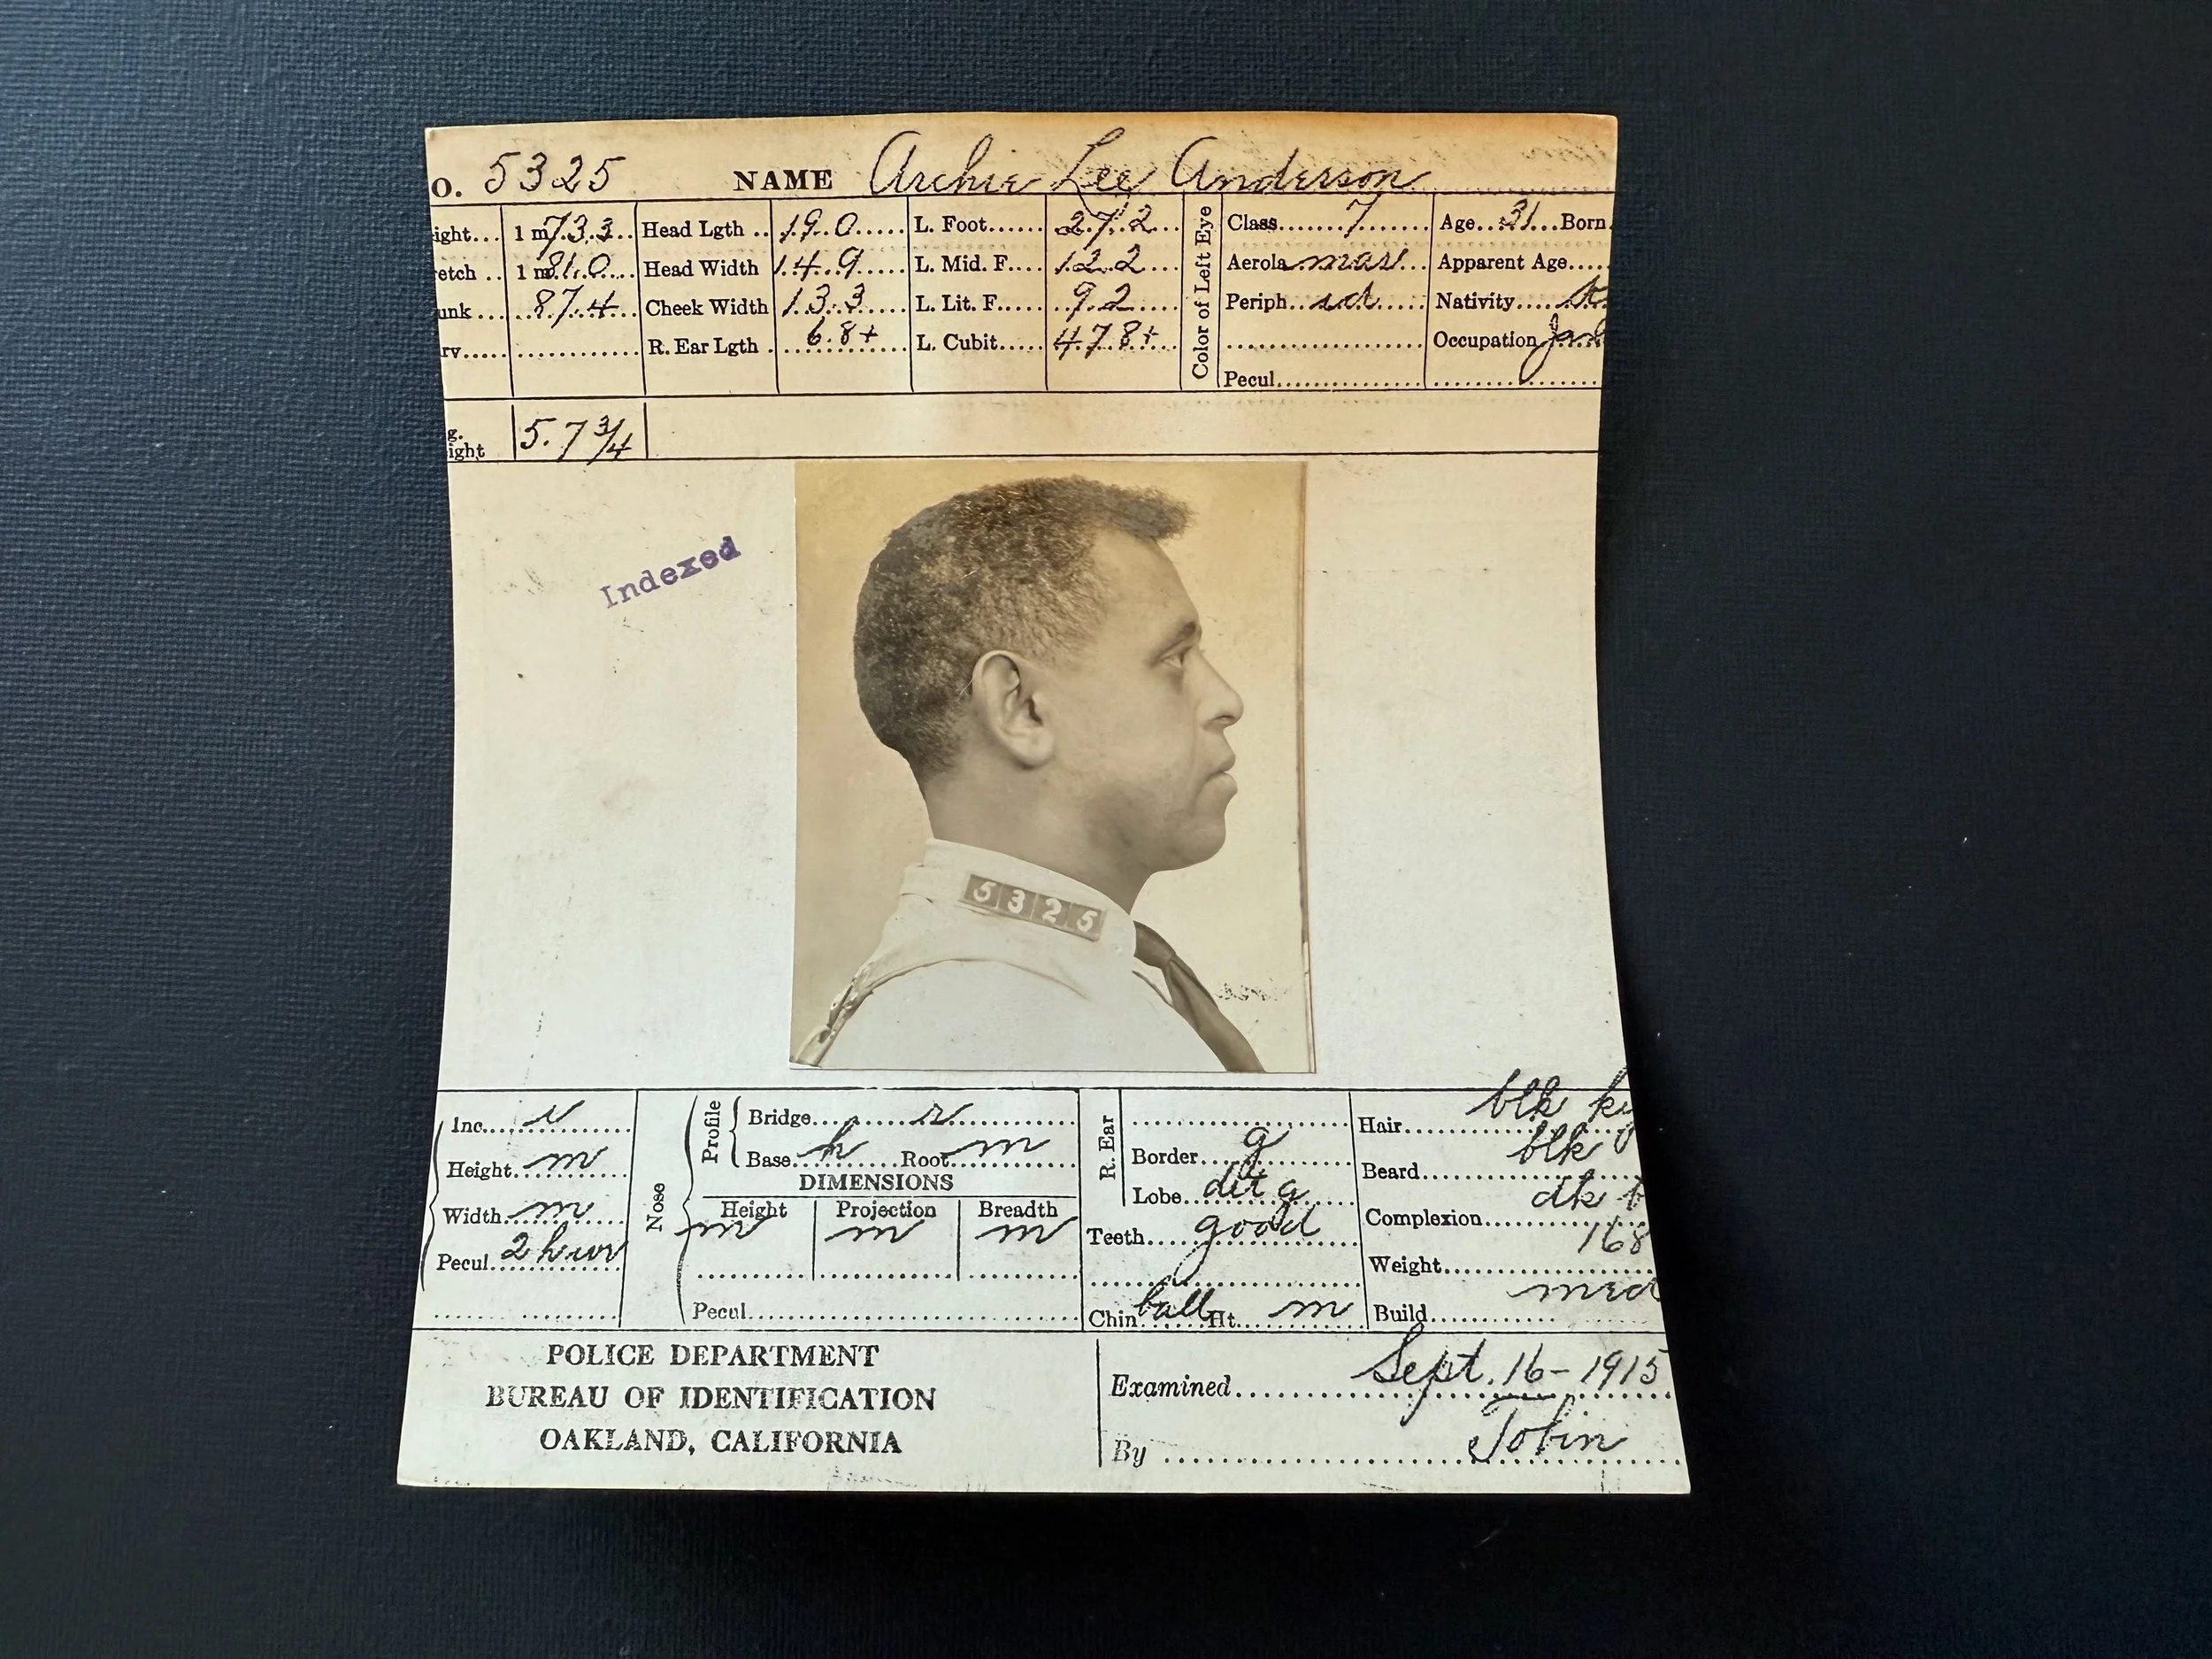 O. 5325 NAME Archie Lee Anderson
ight... 1 m 73.3 Head Lgth .. 19.0 L. Foot 27.2 Color of Left Eye Class 7 Age 31 Born
etch .. 1 m 81.0 Head Width 14.9 L. Mid. F 12.2 Aerola mar Apparent Age
unk ... 87.4 Cheek Width 13.3 L. Lit. F 9.2 Periph Nativity
rv R. Ear Lgth . 6.8+ L. Cubit 47.8+ Occupation
Pecul
g.
ight 5.7 3/4
Indexed
5325
Inc Profile Bridge Hair blk
Height m Base h Root m R. Ear Border g Beard blk
DIMENSIONS Lobe
Width m Nose Height m Projection m Breadth m Teeth good Complexion dk
Pecul 2 h Weight 168
Pecul Chin ball Ht. m Build med
POLICE DEPARTMENT
BUREAU OF IDENTIFICATION
OAKLAND, CALIFORNIA
Examined Sept. 16-1915
By Tobin